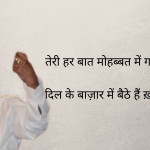 तेरी हर बात मोहब्बत में
दिल के बाज़ार में बैठे हैं